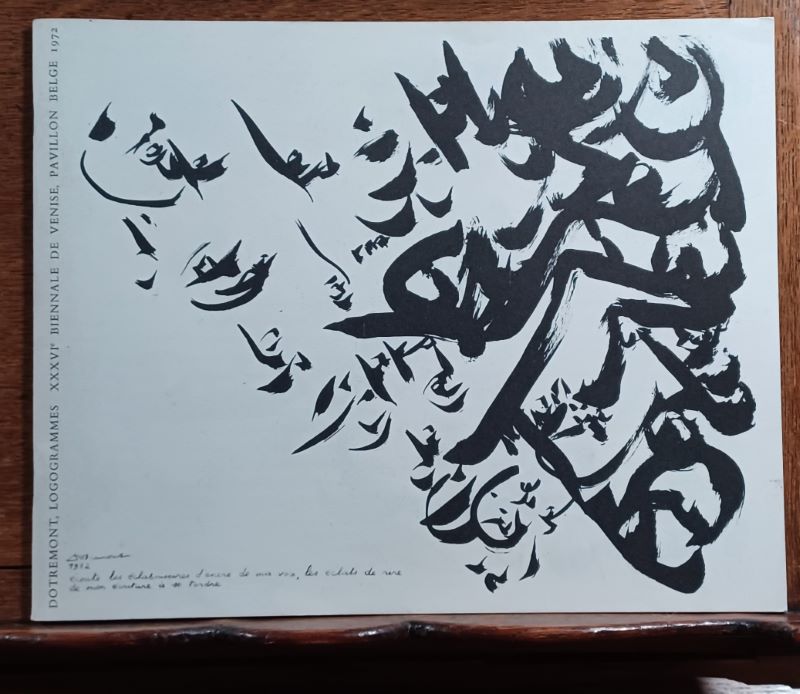 DOTREMONT, LOGOGRAMMES XXXVIᵉ BIENNALE DE VENISE, PAVILLON BELGE 1972
1972
écoute les éclaboussures d'encre de ma voix, les éclats de rire
de mon écriture à se tordre